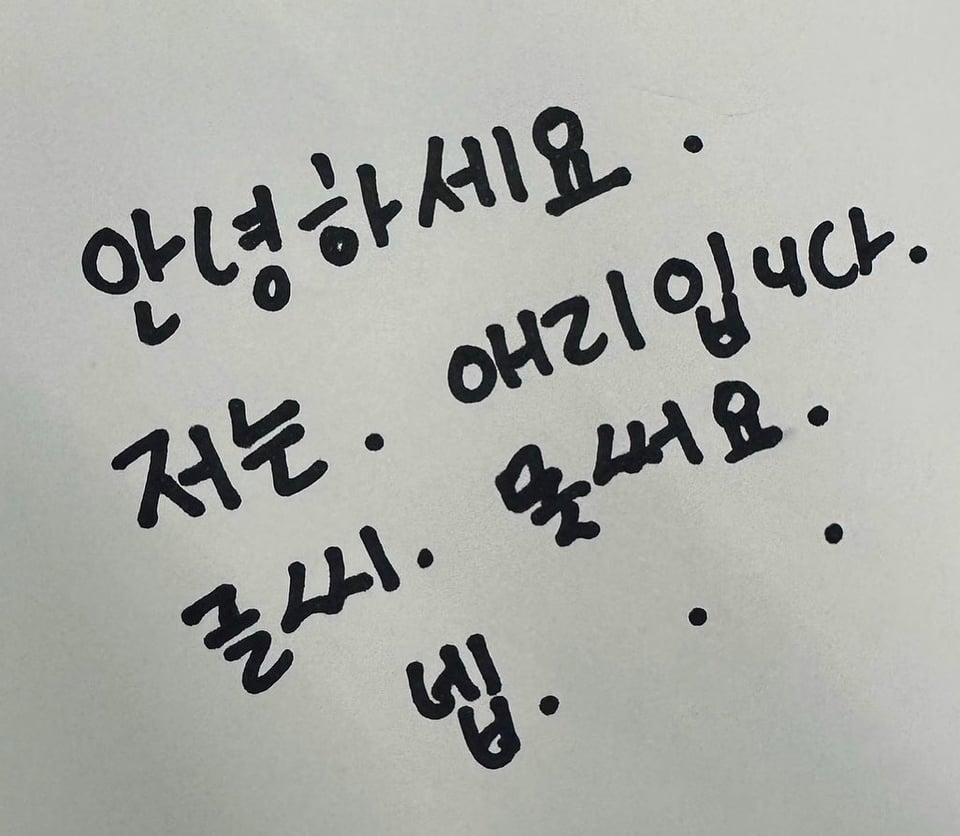 안녕하세요 .
저는 . 애리입니다.
글씨. 못써요.
넵. . .